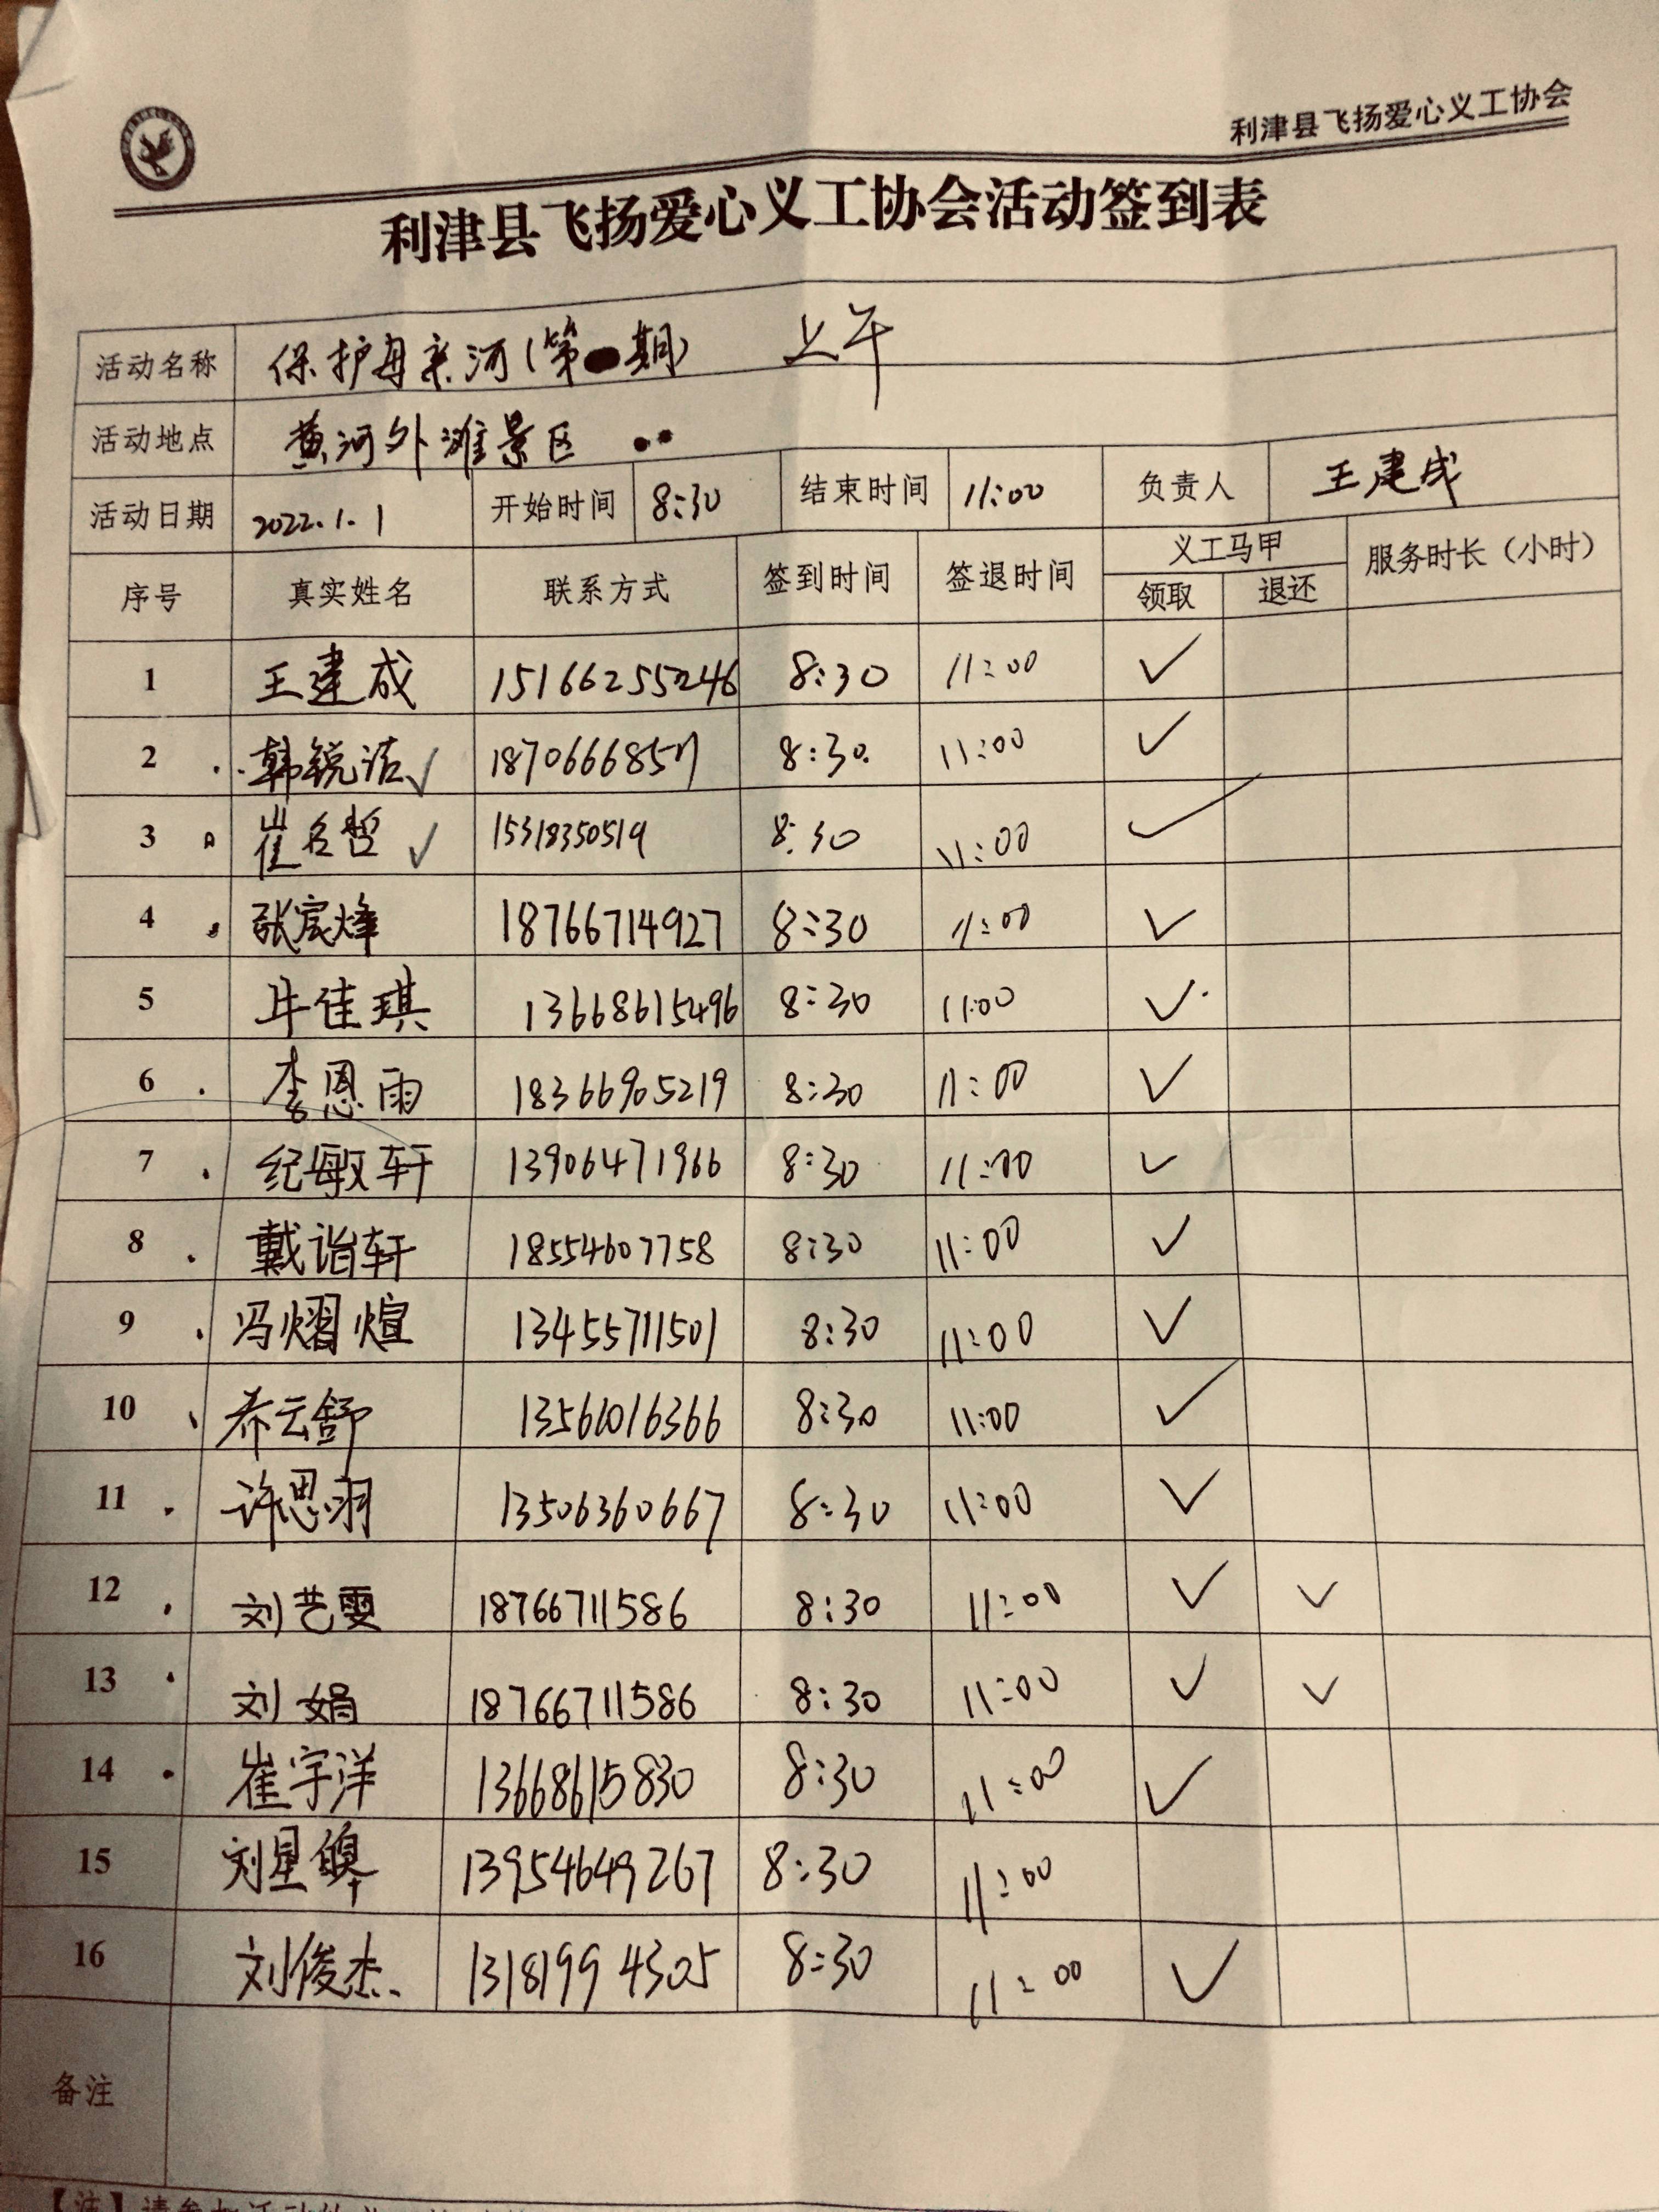 利津县飞扬爱心义工协会
利津县飞扬爱心义工协会活动签到表
活动名称 保护母亲河(第 期) 上午
活动地点 黄河外滩景区
活动日期 2022.1.1 开始时间 8:30 结束时间 11:00 负责人 王建成
序号 真实姓名 联系方式 签到时间 签退时间 义工马甲 服务时长（小时）
领取 退还
1 王建成 15166255246 8:30 11:00 ✓
2 韩锐洁✓ 8:30 11:00 ✓
3 崔名哲✓ 15318350519 8:30 11:00 ✓
4 张宸烽 18766714927 8:30 11:00 ✓
5 牛佳琪 13668615496 8:30 11:00 ✓
6 李恩雨 18366905219 8:30 11:00 ✓
7 纪敏轩 13906471966 8:30 11:00 ✓
8 戴诣轩 18554607758 8:30 11:00 ✓
9 冯熠煊 13455711501 8:30 11:00 ✓
10 乔云舒 13561016366 8:30 11:00 ✓
11 许思羽 13506360667 8:30 11:00 ✓
12 刘艺雯 18766711586 8:30 11:00 ✓ ✓
13 刘娟 18766711586 8:30 11:00 ✓ ✓
14 崔宇洋 13668615830 8:30 11:00 ✓
15 刘星皞 13954649267 8:30 11:00
16 刘俊杰 13181994305 8:30 11:00 ✓
备注
【注】请参加活动的